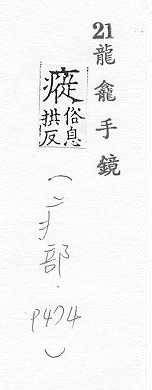 21龍龕手鏡
瘲俗息拱反
(疒部.
P474)